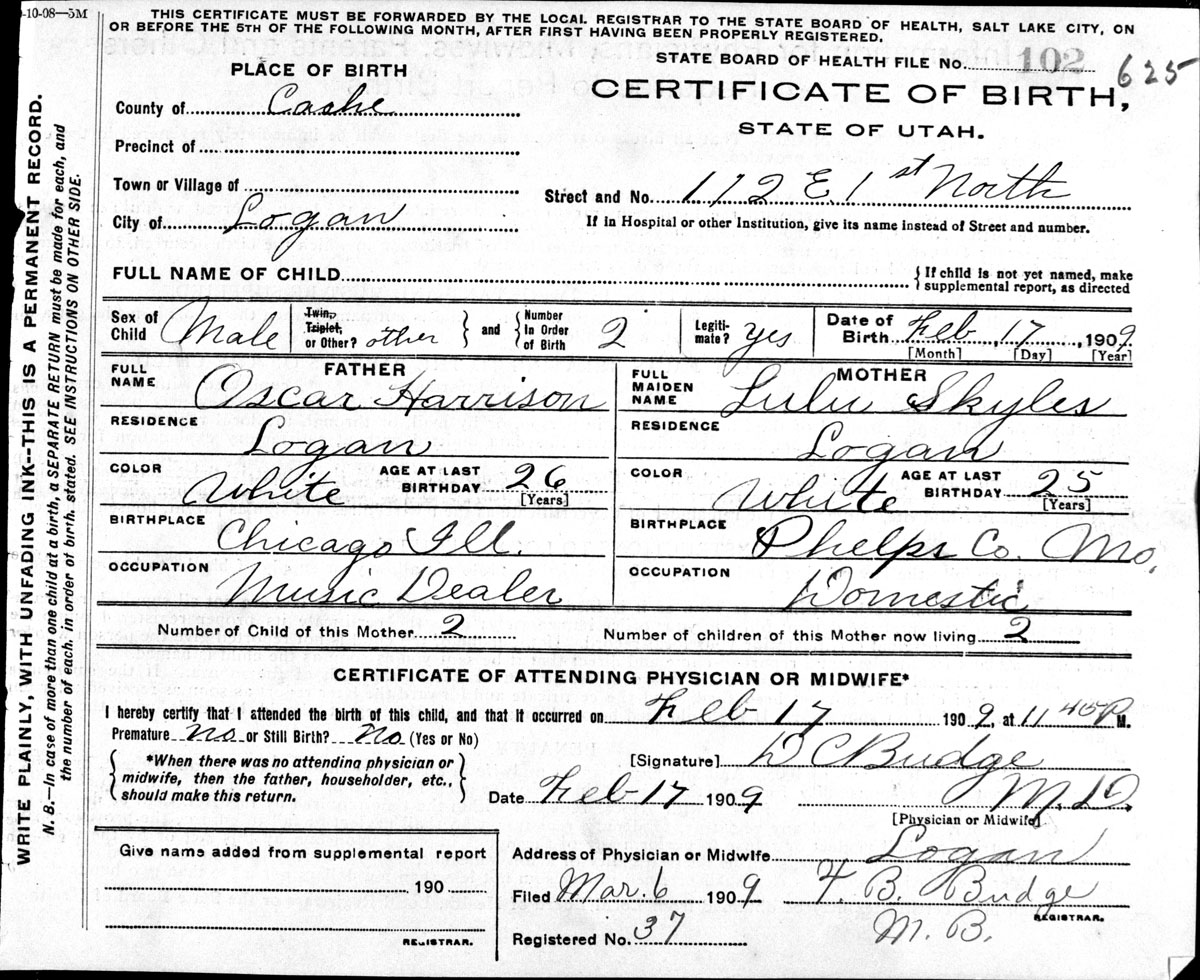 -10-08—5M
THIS CERTIFICATE MUST BE FORWARDED BY THE LOCAL REGISTRAR TO THE STATE BOARD OF HEALTH, SALT LAKE CITY, ON
OR BEFORE THE 5TH OF THE FOLLOWING MONTH, AFTER FIRST HAVING BEEN PROPERLY REGISTERED.
WRITE PLAINLY, WITH UNFADING INK--THIS IS A PERMANENT RECORD.
N. B.—In case of more than one child at a birth, a SEPARATE RETURN must be made for each, and
the number of each, in order of birth, stated. SEE INSTRUCTIONS ON OTHER SIDE.
PLACE OF BIRTH
County of Cashe
Precinct of
Town or Village of
City of Logan
STATE BOARD OF HEALTH FILE No. 102 625
CERTIFICATE OF BIRTH,
STATE OF UTAH.
Street and No. 112 E. 1st North
If in Hospital or other Institution, give its name instead of Street and number.
FULL NAME OF CHILD { If child is not yet named, make
supplemental report, as directed
Sex of Child Male
Twin, Triplet, or Other? other } and { Number In Order of Birth 2
Legiti-mate? yes
Date of Birth Feb 17, 1909
[Month] [Day] [Year]
FATHER
FULL NAME Oscar Harrison
RESIDENCE Logan
COLOR White AGE AT LAST BIRTHDAY 26 [Years]
BIRTHPLACE Chicago Ill.
OCCUPATION Music Dealer
MOTHER
FULL MAIDEN NAME Lulu Skyles
RESIDENCE Logan
COLOR White AGE AT LAST BIRTHDAY 25 [Years]
BIRTHPLACE Phelps Co. Mo.
OCCUPATION Domestic
Number of Child of this Mother 2 Number of children of this Mother now living 2
CERTIFICATE OF ATTENDING PHYSICIAN OR MIDWIFE*
I hereby certify that I attended the birth of this child, and that it occurred on Feb 17 1909, at 11 45 P M.
Premature No or Still Birth? No (Yes or No)
{ *When there was no attending physician or
midwife, then the father, householder, etc.,
should make this return. }
[Signature] D C Budge
Date Feb 17 1909 M.D.
[Physician or Midwife]
Give name added from supplemental report
190
REGISTRAR.
Address of Physician or Midwife Logan
Filed Mar. 6 1909 F. B. Budge
REGISTRAR.
Registered No. 37 M. B.